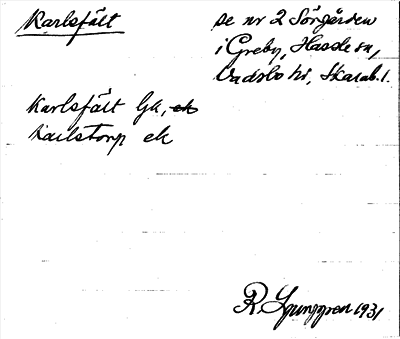 Karlsfält
se nr 2 Sörgården
i Greby, Hassle sn,
Vadsbo hd, Skarab. l.
Karlsfält Gk, ek
Karlstorp ek
R. Ljunggren 1931